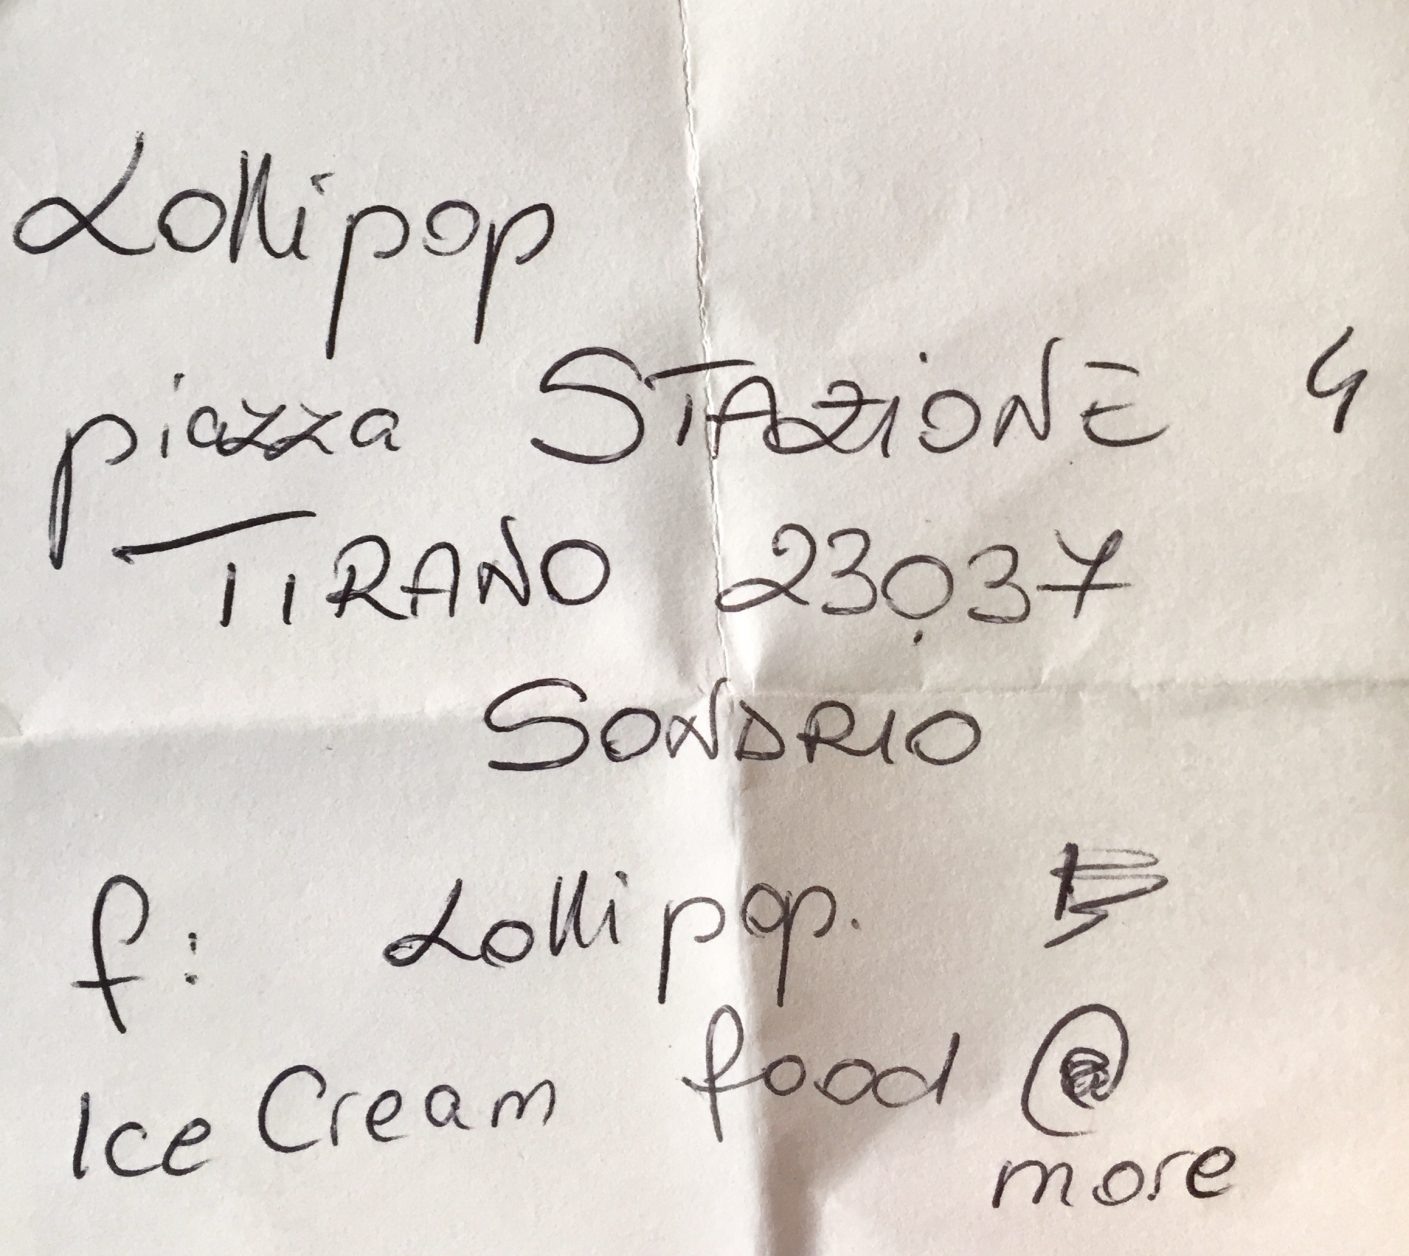 Lollipop
piazza STAZIONE 4
TIRANO 23037
SONDRIO
f: Lollipop.
Ice Cream food @
more